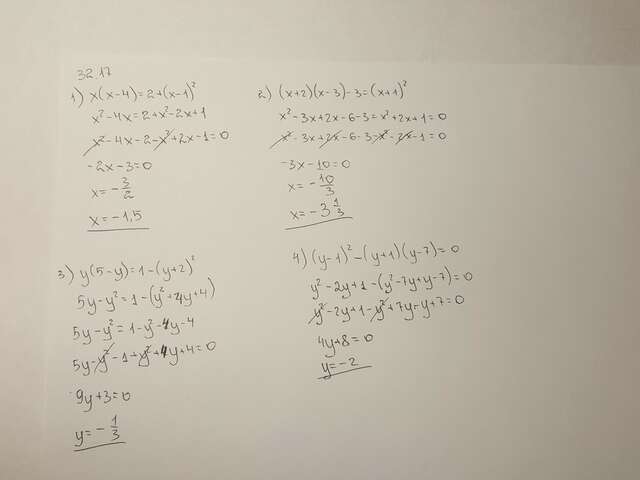 32.17
1) x(x-4)=2+(x-1)²
x²-4x=2+x²-2x+1
x²-4x-2-x²+2x-1=0
-2x-3=0
x=-3/2
x=-1,5
2) (x+2)(x-3)-3=(x+1)²
x²-3x+2x-6-3=x²+2x+1=0
x²-3x+2x-6-3-x²-2x-1=0
-3x-10=0
x=-10/3
x=-3 1/3
3) y(5-y)=1-(y+2)²
5y-y²=1-(y²+4y+4)
5y-y²=1-y²-4y-4
5y-y²-1+y²+4y+4=0
9y+3=0
y=-1/3
4) (y-1)²-(y+1)(y-7)=0
y²-2y+1-(y²-7y+y-7)=0
y²-2y+1-y²+7y-y+7=0
4y+8=0
y=-2